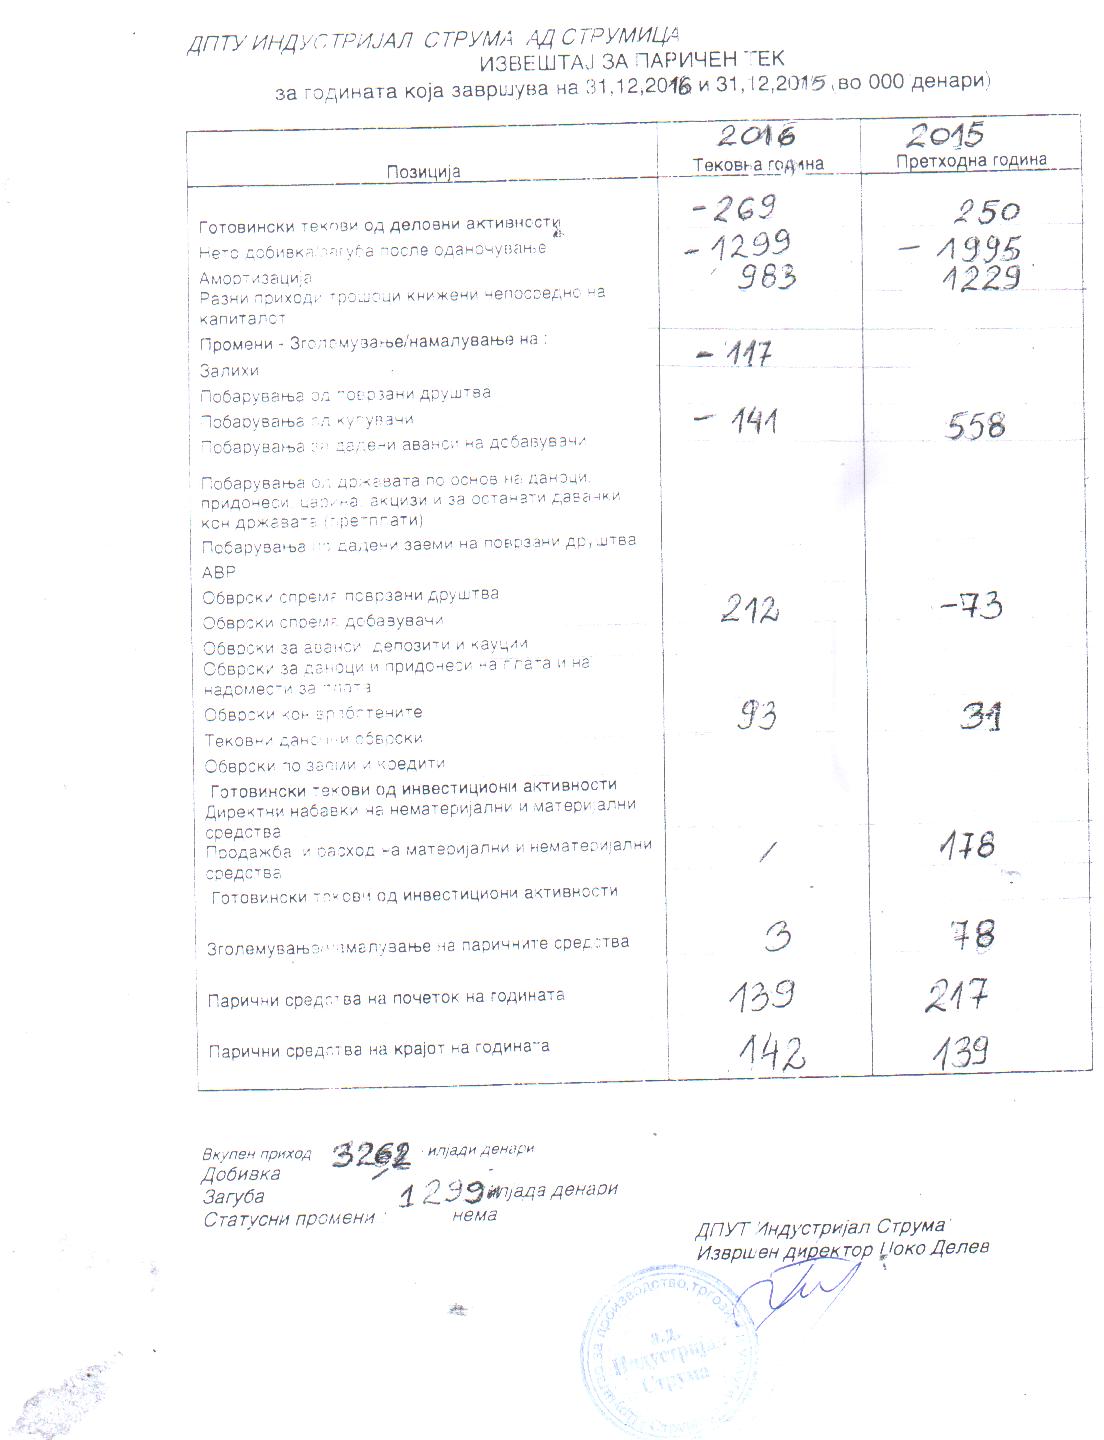 ДПТУ ИНДУСТРИЈАЛ СТРУМА АД СТРУМИЦА
ИЗВЕШТАЈ ЗА ПАРИЧЕН ТЕК
за годината која завршува на 31,12,2016 и 31,12,2015 (во 000 денари)
2016 2015
Позиција Тековна година Претходна година
Готовински текови од деловни активности -269 250
Нето добивка/загуба после оданочување -1299 -1995
Амортизација 983 1229
Разни приходи трошоци книжени непосредно на
капиталот
Промени - Зголемување/намалување на :
Залихи -117
Побарувања од поврзани друштва
Побарувања од купувачи -141 558
Побарувања за дадени аванси на добавувачи
Побарувања од државата по основ на даноци,
придонеси, царина, акцизи и за останати давачки
кон државата (претплати)
Побарувања по дадени заеми на поврзани друштва
АВР
Обврски спрема поврзани друштва
Обврски спрема добавувачи 212 -73
Обврски за аванси, депозити и кауции
Обврски за даноци и придонеси на плата и на
надомести за плата
Обврски кон вработените 93 31
Тековни даночни обврски
Обврски по заеми и кредити
Готовински текови од инвестициони активности
Директни набавки на нематеријални и материјални
средства
Продажба и расход на материјални и нематеријални / 178
средства
Готовински текови од инвестициони активности
Зголемување/намалување на паричните средства 3 78
Парични средства на почеток на годината 139 217
Парични средства на крајот на годината 142 139
Вкупен приход 3262 илјади денари
Добивка /
Загуба 1299 илјада денари
Статусни промени : нема
ДПУТ Индустријал Струма
Извршен директор Цоко Делев
а.д.
Индустријал
Струма